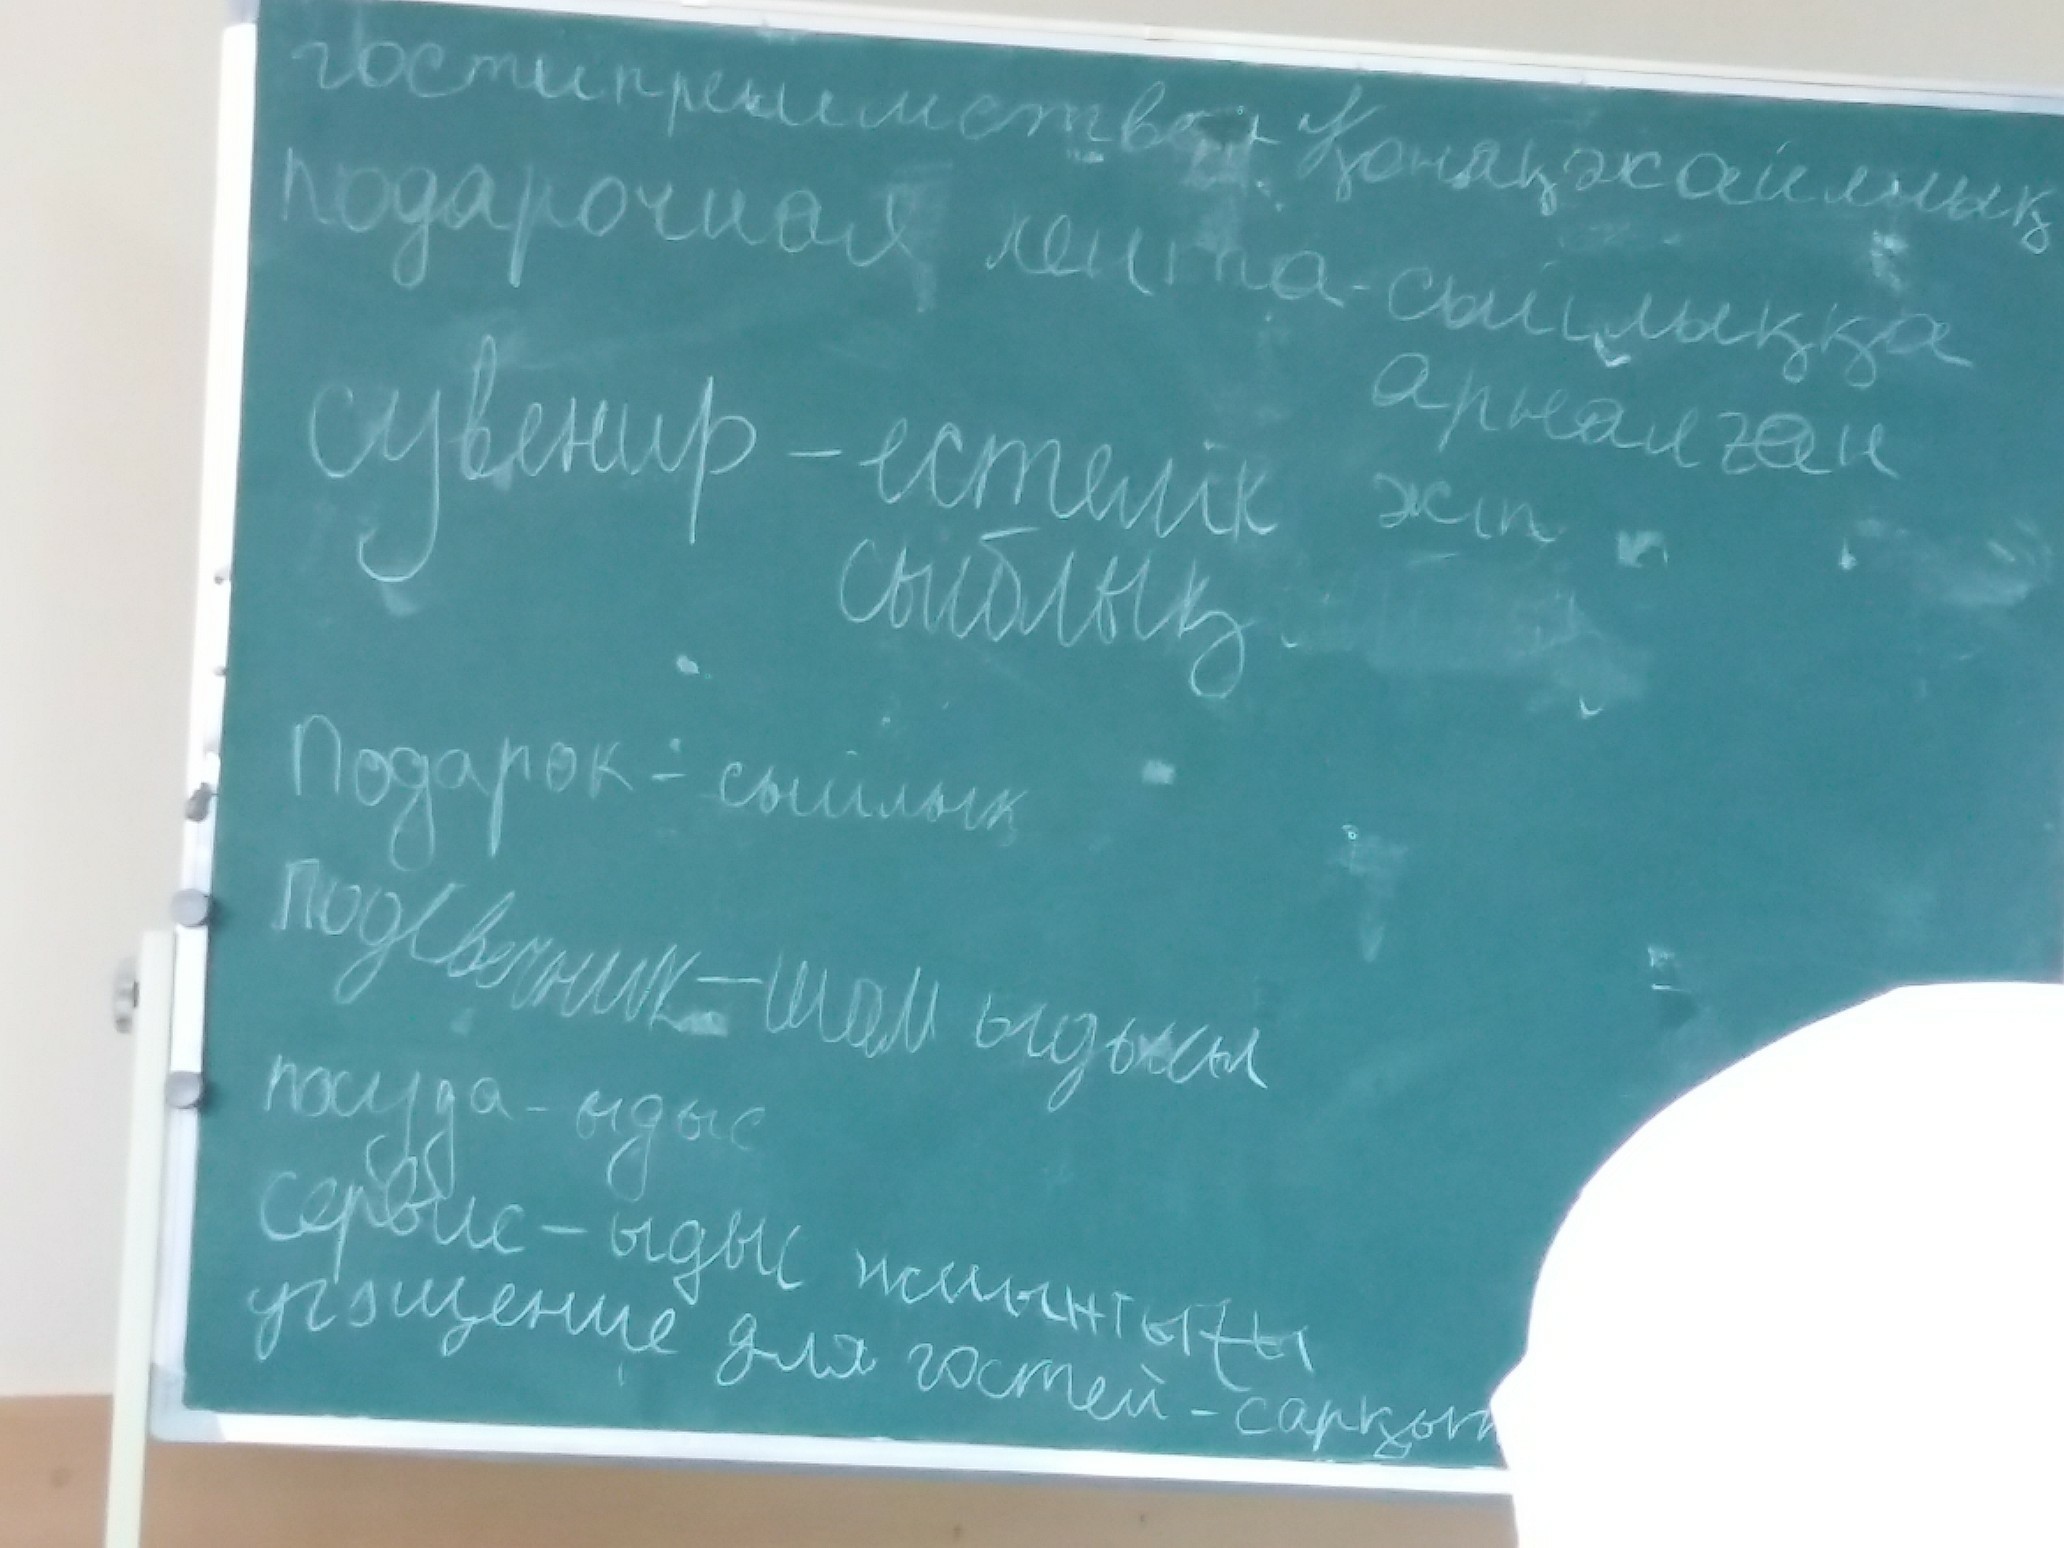 гостиприимство - Қонақжайлылық
подарочная лента - сыйлыққа
арналған
жіп
сувенир - естелік
сыйлық
Подарок - сыйлық
подсвечник - шам ыдысы
посуда - ыдыс
сервис - ыдыс жиынтығы
угощение для гостей - сарқыт